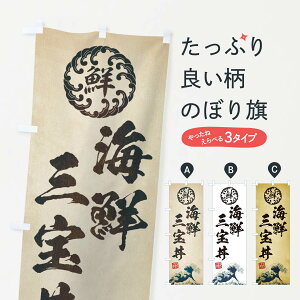 鮮
海鮮
三宝丼
たっぷり
良い柄
のぼり旗
やったね
えらべる3タイプ
A
B
C
鮮
海鮮
三宝丼
鮮
海鮮
三宝丼
鮮
海鮮
三宝丼